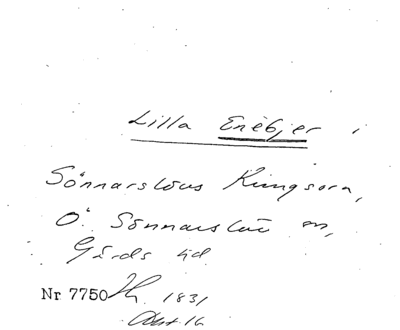 Lilla Enebjer i
Sönnarslövs Kungsorn,
Ö. Sönnarslöv sn,
Gärds hd.
Nr 7750 1831